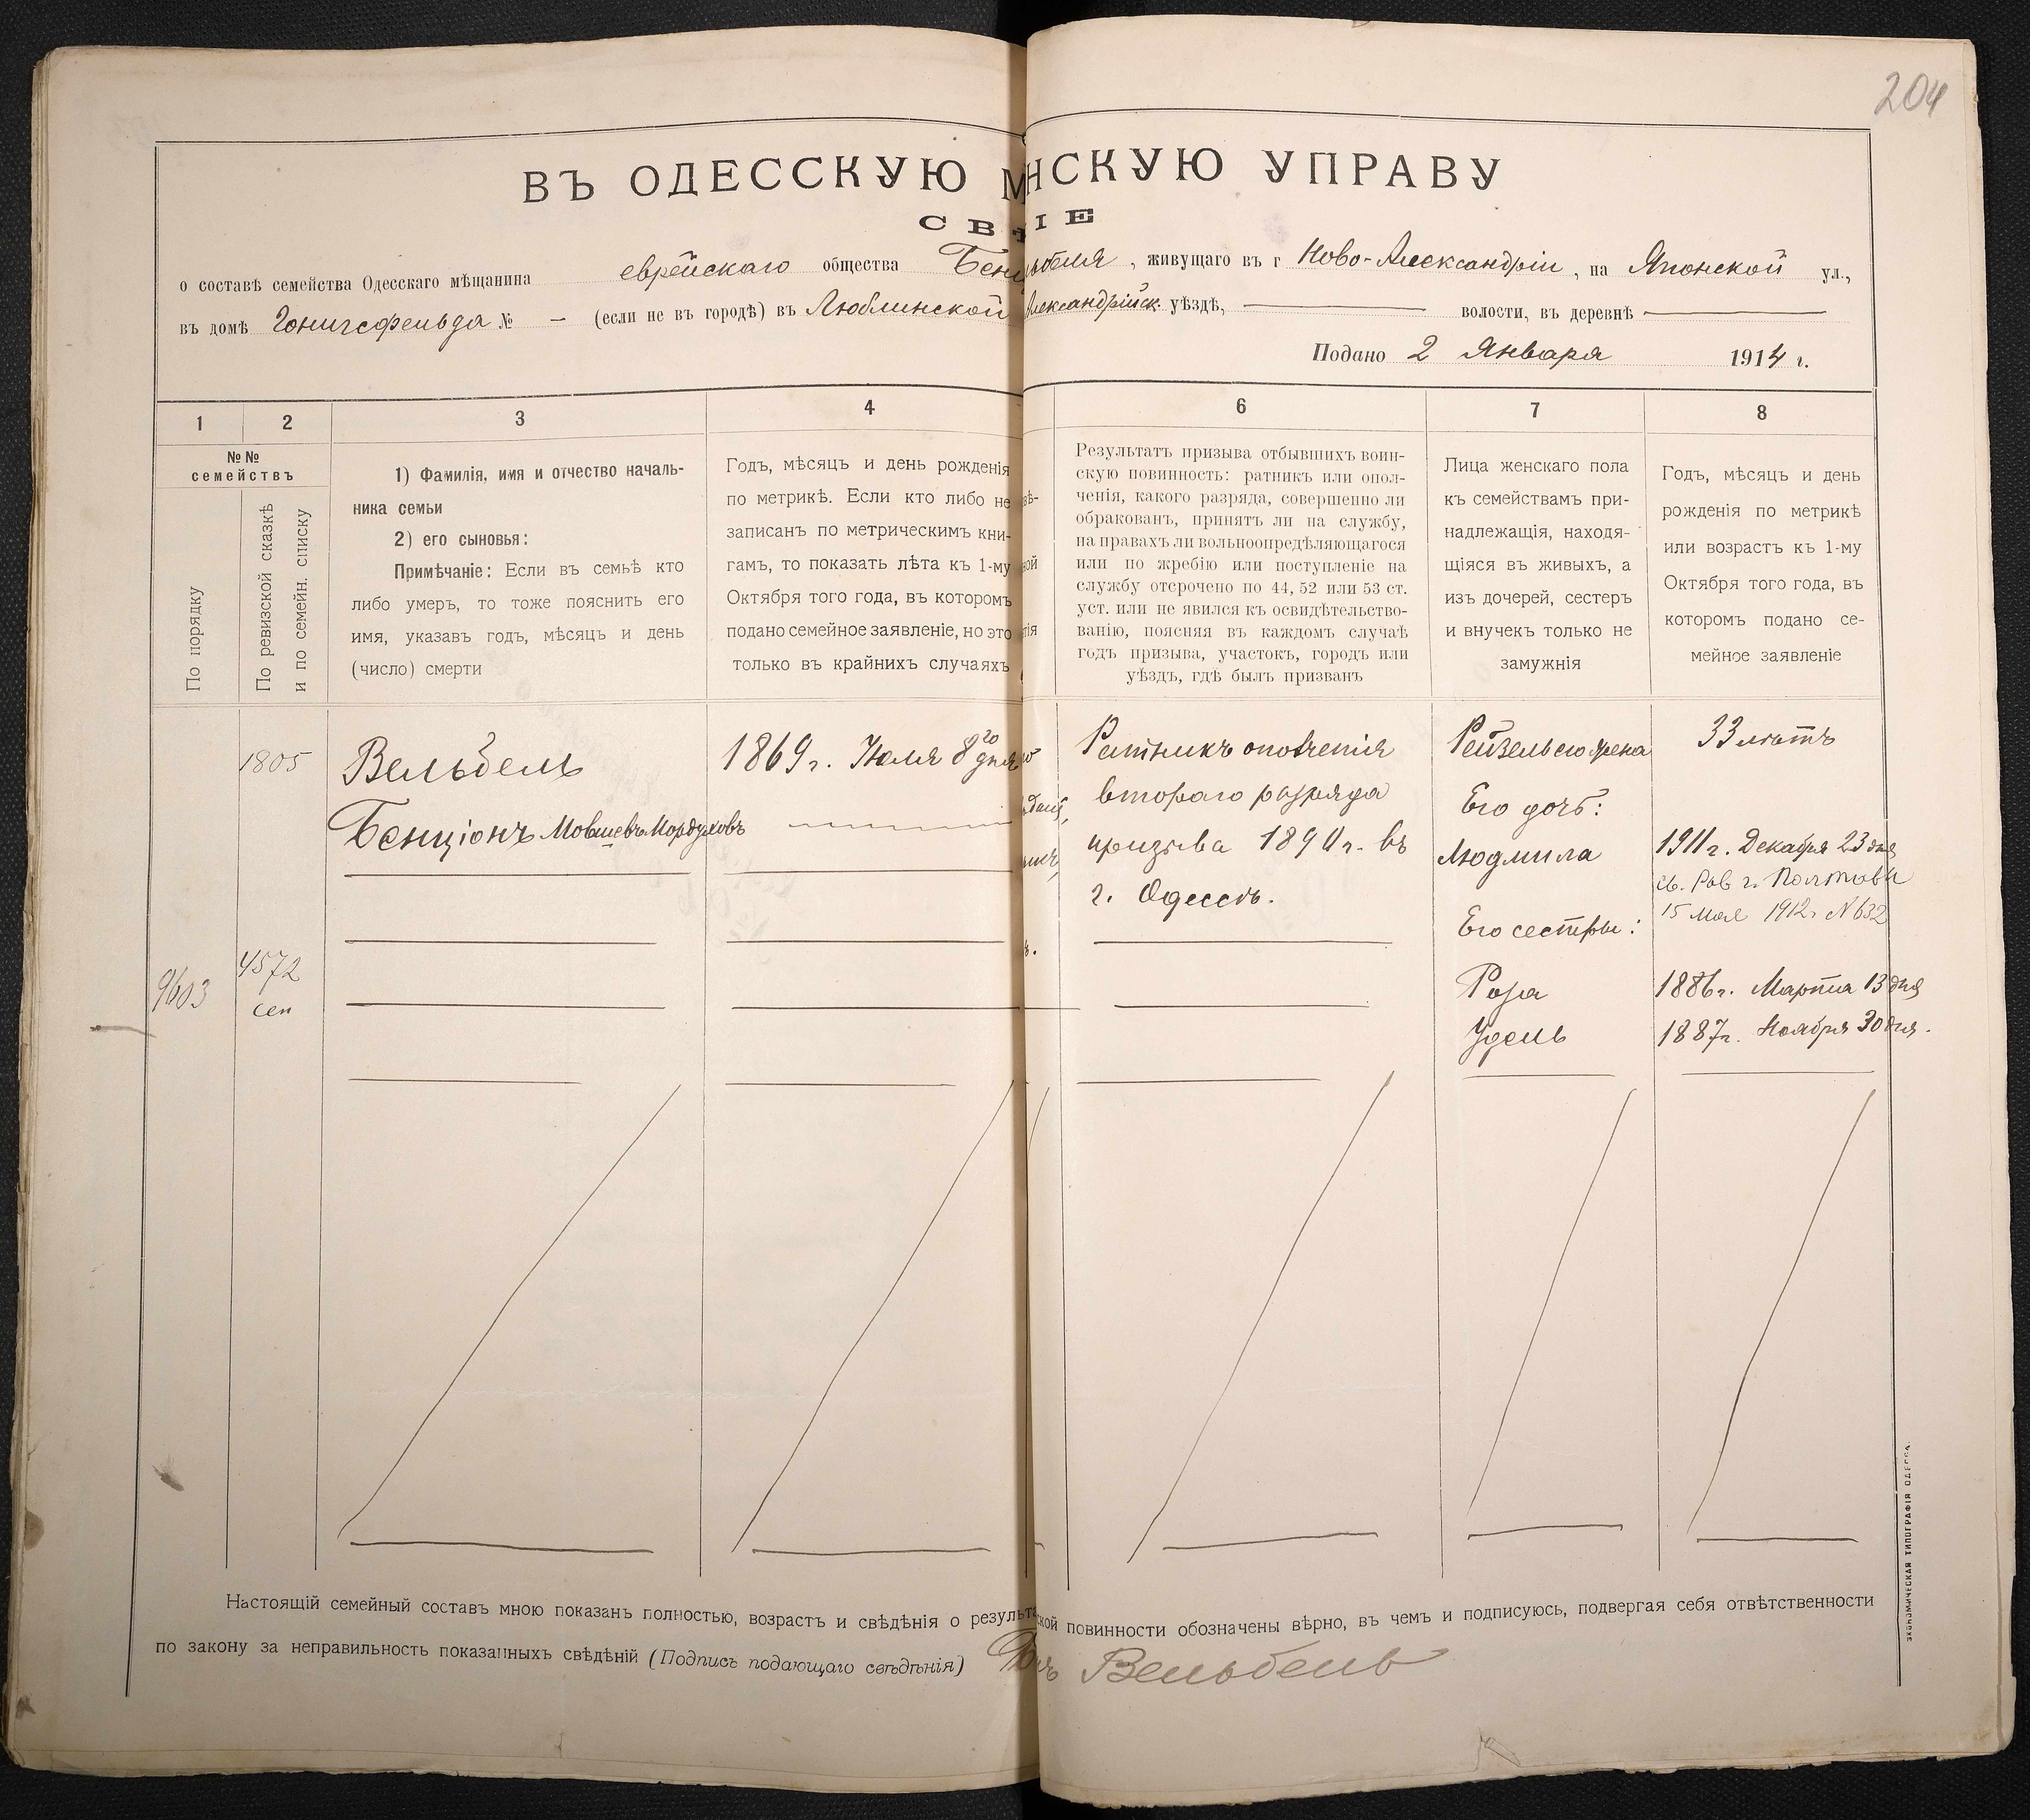 204
ВЪ ОДЕССКУЮ М НСКУЮ УПРАВУ
СВ ІЕ
о составѣ семейства Одесскаго мѣщанина еврейскаго общества Бен вельбеля, живущаго въ г Ново-Александріи, на Японской ул.,
въ домѣ Гонигсфельда № — (если не въ городѣ) въ Люблинской Александрійск. уѣздѣ, волости, въ деревнѣ
Подано 2 Января 1914 г.
1 2 3 4 6 7 8
№№ семействъ
По порядку
По ревизской сказкѣ и по семейн. списку
1) Фамилія, имя и отчество началь-
ника семьи
2) его сыновья:
Примѣчаніе: Если въ семьѣ кто
либо умеръ, то тоже пояснить его
имя, указавъ годъ, мѣсяцъ и день
(число) смерти
Годъ, мѣсяцъ и день рожденія
по метрикѣ. Если кто либо не
записанъ по метрическимъ кни-
гамъ, то показать лѣта къ 1-му
Октября того года, въ которомъ
подано семейное заявленіе, но это
только въ крайнихъ случаяхъ
Результатъ призыва отбывшихъ воин-
скую повинность: ратникъ или опол-
ченія, какого разряда, совершенно ли
обракованъ, принятъ ли на службу,
на правахъ ли вольноопредѣляющагося
или по жребію или поступленіе на
службу отсрочено по 44, 52 или 53 ст.
уст. или не явился къ освидѣтельство-
ванію, поясняя въ каждомъ случаѣ
годъ призыва, участокъ, городъ или
уѣздъ, гдѣ былъ призванъ
Лица женскаго пола
къ семействамъ при-
надлежащія, находя-
щіяся въ живыхъ, а
изъ дочерей, сестеръ
и внучекъ только не
замужнія
Годъ, мѣсяцъ и день
рожденія по метрикѣ
или возрастъ къ 1-му
Октября того года, въ
которомъ подано се-
мейное заявленіе
9603
1805
4572
сем
Вельбель
Бенціонъ Мовшевъ Мордуховъ
1869 г. Юля 8го дня
Ратникъ ополченія
втораго разряда
призыва 1890 г. въ
г. Одессѣ.
Рейзель его жена
Его дочь:
Людмила
Его сестры:
Роза
Удель
33 лѣтъ
1911 г. Декабря 23 дня
св. Рав г. Полтавы
15 Мая 1912 г №632
1886 г. Марта 13 дня
1887 г. Ноября 30 дня.
Настоящій семейный составъ мною показанъ полностью, возрастъ и свѣдѣнія о результа ской повинности обозначены вѣрно, въ чемъ и подписуюсь, подвергая себя отвѣтственности
по закону за неправильность показанныхъ свѣдѣній (Подпись подающаго свѣдѣнія) Вельбель
ЭКОНОМИЧЕСКАЯ ТИПОГРАФІЯ ОДЕССА.